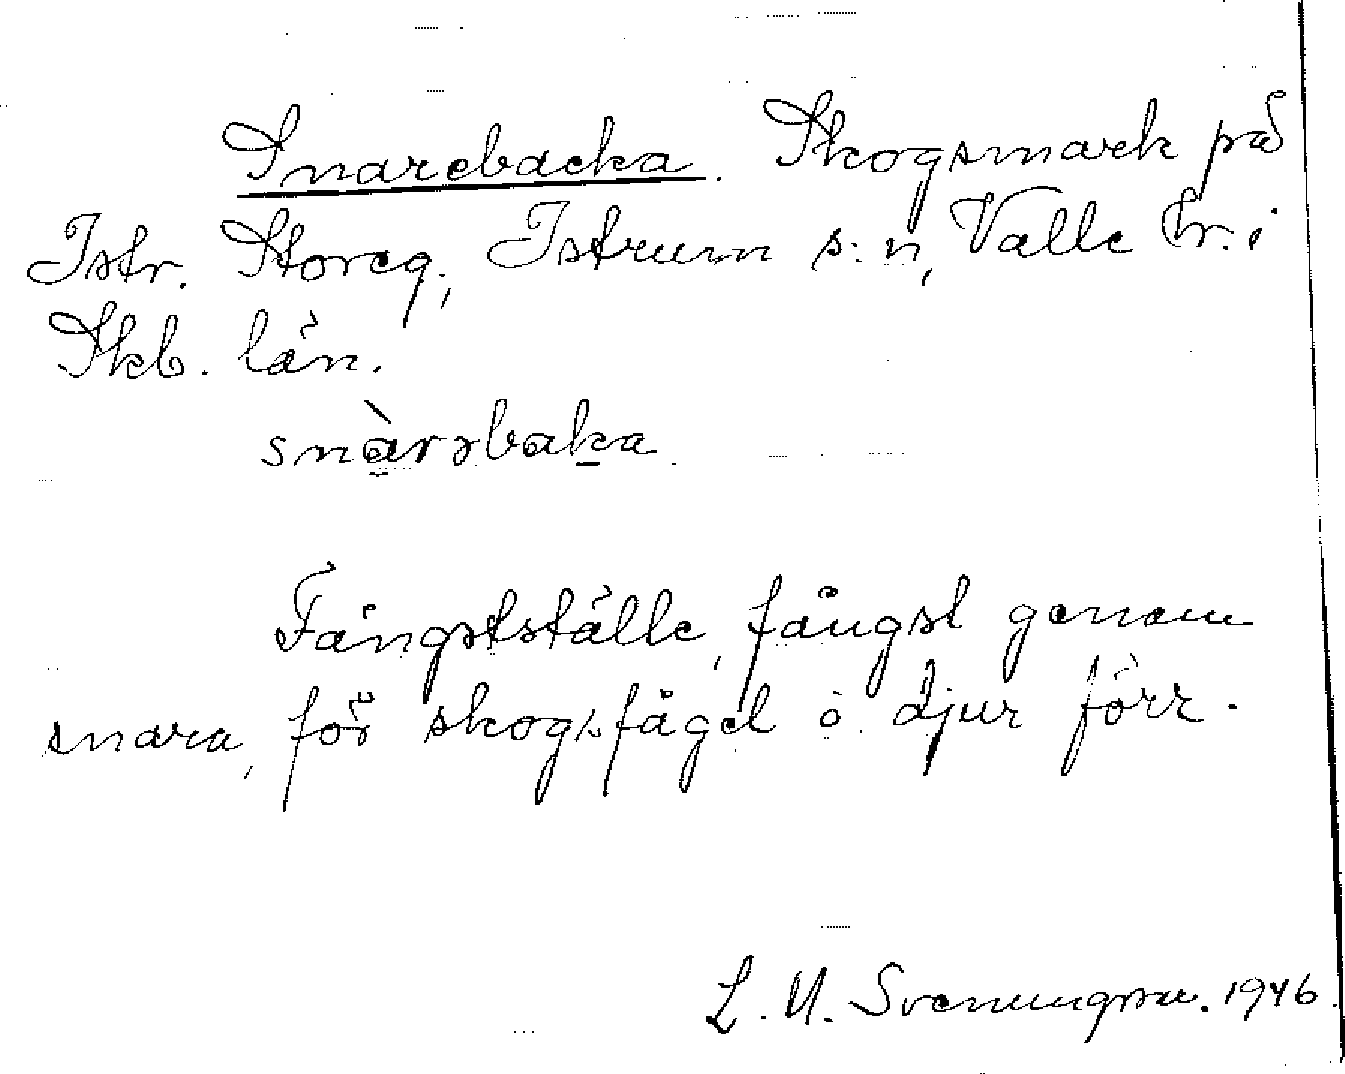 Snarebacka. Skogsmark på
Istr. Storeg., Istrum s:n, Valle hr. i
Skb. län.
snàrəbaka
Fångstställe, fångst genom
snara, för skogsfågel o djur förr.
L. N. Svenungsson. 1946.